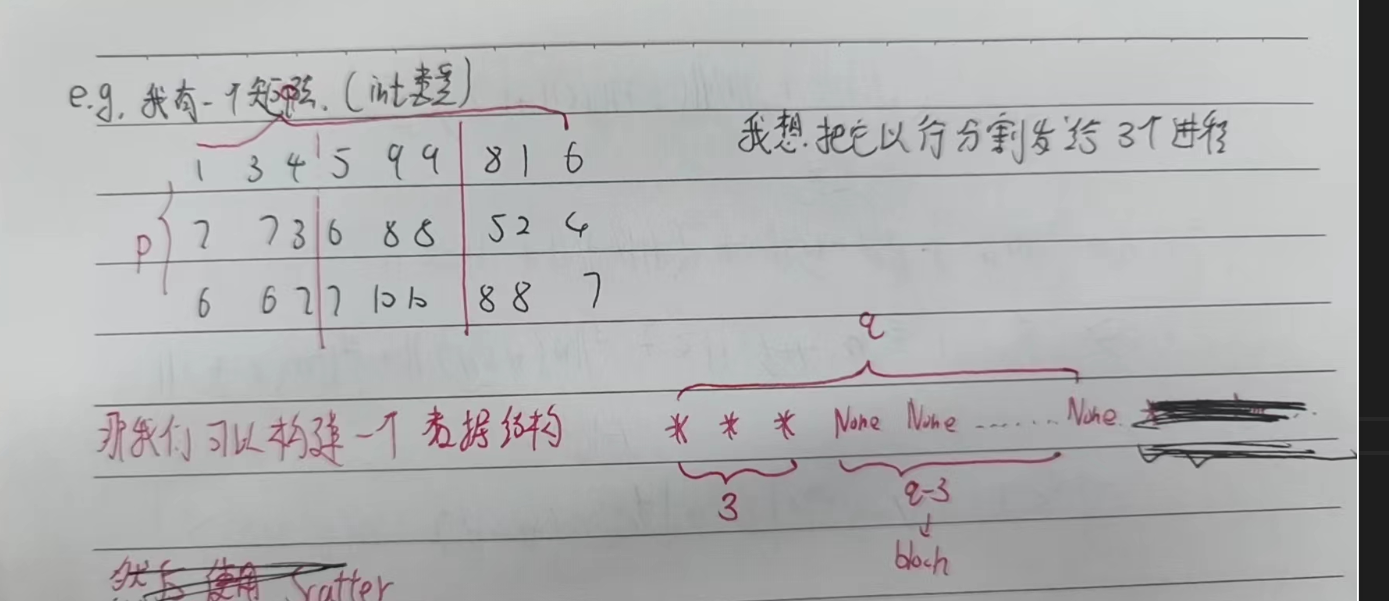 e.g. 我有一个矩阵.(int类型)
我想把它以行分割发给3个进程
1 3 4 5 9 9 8 1 6
p
7 7 3 6 8 8 5 2 4
6 6 7 7 10 10 8 8 7
q
那我们可以构建一个数据结构 * * * None None ...... None
3 q-3
bloch
Scatter